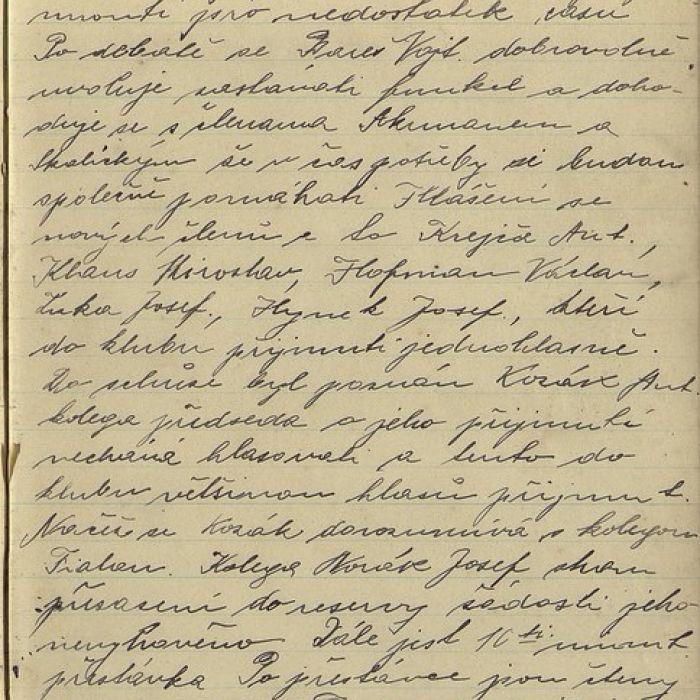 pro nedostatek času
Po debatě se Bareš Vojt. dobrovolně
uvoluje zastávati funkci a doho-
duje se s členama Akrmanem a
Kalickým že v čas potřeby si budou
společně pomáhati Hlášení se
nových členů a to Krejčí Ant.,
Klaus Miroslav, Hofman Václav,
Zuka Josef., Hynek Josef., kteří
do klubu přijmuti jednohlasně.
Do schůse byl pozván Kozák Ant.
kolega předseda o jeho přijmutí
nechává hlasovati a tento do
klubu většinou hlasů přijmut.
Načeš se Kozák dorozumívá s kolegou
Fialou. Kolega Novák Josef
přesazení do reservy žádosti jeho
nevyhověno Dále jest 10ti minut.
přestávka Po přestávce jsou čteny